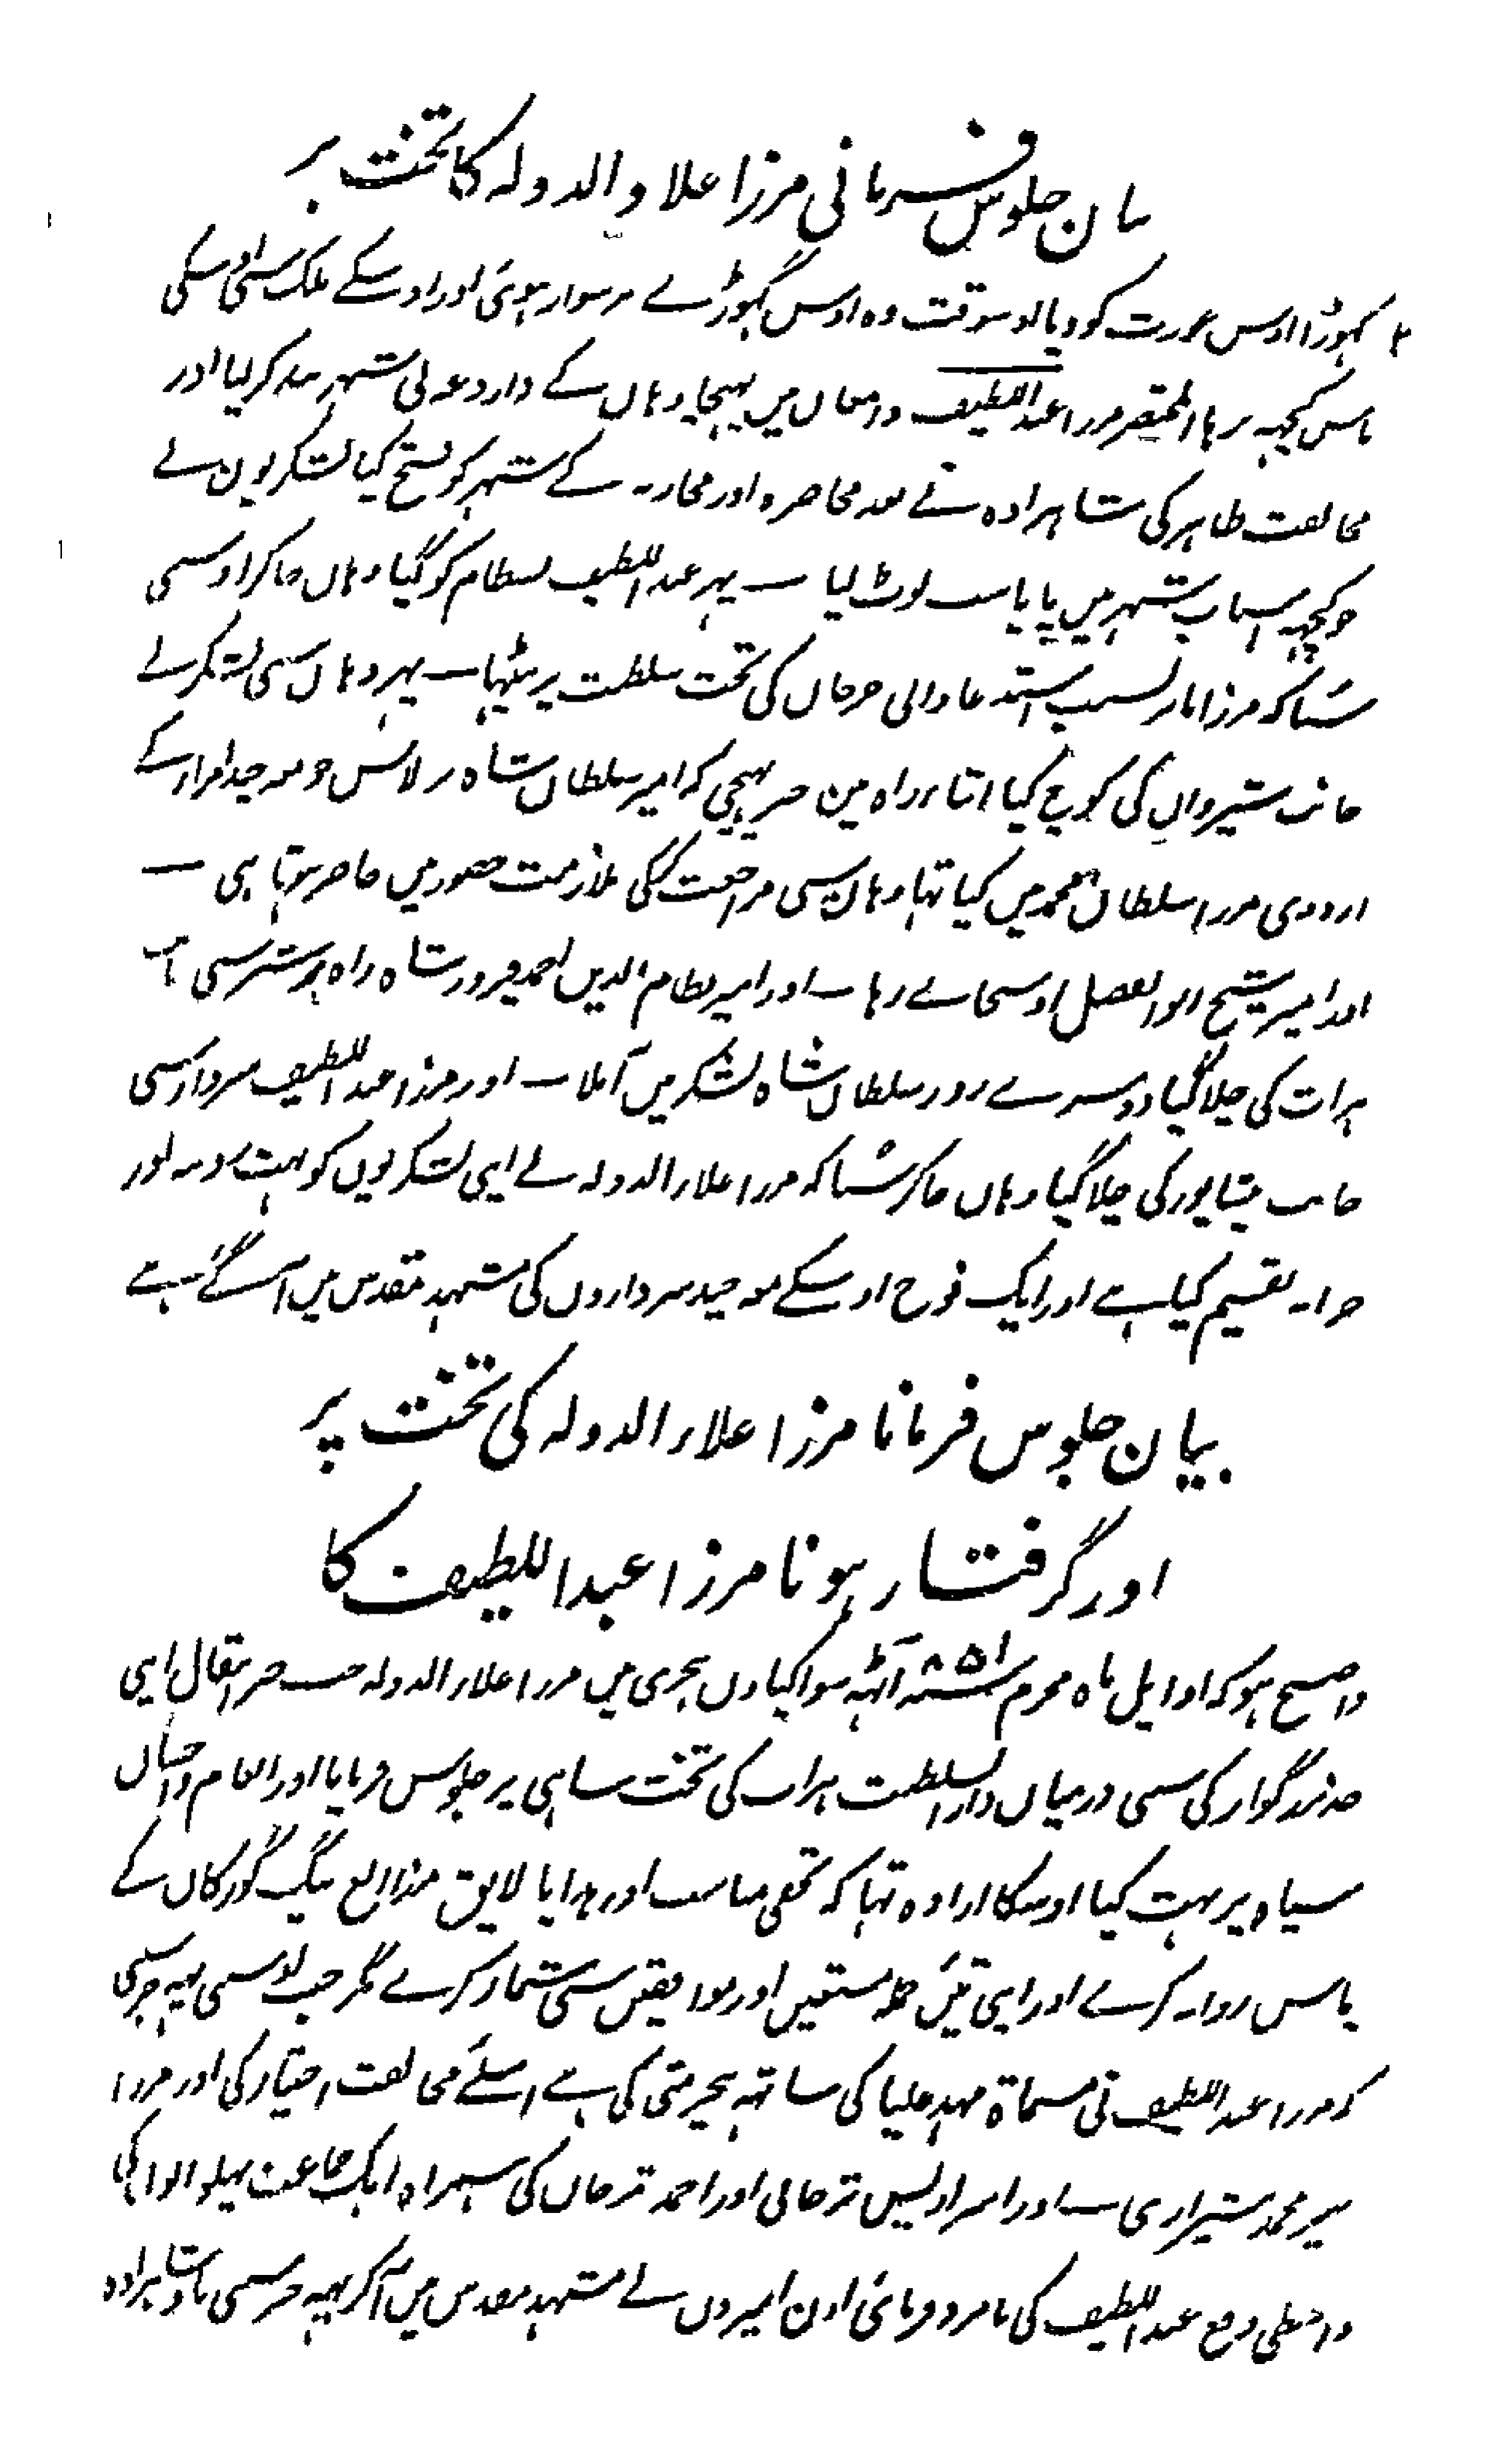 بیان جلوس فرمانی مرزا علاء الدولہ کا تخت پر
گہوڑا اوس عورت کو دیا اوسوقت وہ اوس گہوڑے پر سوار ہوئی اور اوسکے ملک سی اوسکی
پاس کچہہ نرہا المختصر مرزا عبداللطیف دامغان میں پہنچا وہاں کے داروغہ نی شہر بند کر لیا اور
مخالفت ظاہر کی شاہزادہ نے بعد محاصرہ اور محاربہ کے شہر کو فتح کیا لشکریون نے
جو کچہہ اسباب شہر میں پایا سب لوٹ لیا ۔ پہر عبداللطیف بسطام کو گیا وہاں جاکر اوسی
سُنا کہ مرزا بابر بسبب استدعا والی جرجان کی تخت سلطنت پر بیٹہا ۔ پہر وہاں سی لشکر نے
جانب سبزوار کی کوچ کیا اثناء راہ مین خبر پہنچی کہ امیر سلطان شاہ برلاس جو معہ چند امراء کے
اردوی مرزا سلطان محمد میں گیا تہا وہاں سی مراجعت کرکی ملازمت حضور میں حاضر ہوتا ہی ۔
اور امیر شیخ ابوالفضل اوسی جاے رہا ۔ اور امیر نظام الدین احمد فیروز شاہ راہ سی
ہرات کی چلا گیا دوسرے روز سلطان شاہ لشکر میں آملا ۔ اور مرزا عبداللطیف سبزوار سی
جانب نیشاپور کی چلا گیا وہاں جاکر سُنا کہ مرزا علاء الدولہ نے اپنی لشکریوں کو بہت روپیہ اور
خزانہ تقسیم کیا ہے اور ایک فوج اوسکے معہ چند سرداروں کی مشہد مقدس میں آگئے ہے
بیان جلوس فرمانا مرزا علاء الدولہ کی تخت پر
اور گرفتار ہونا مرزا عبداللطیف کا
واضح ہو کہ اوایل ماہ محرم ۸۵۱ سنہ آٹہہ سو اکیاون ہجری میں مرزا علاء الدولہ حسب خبر انتقال اپنی
جد بزرگوار کی سی درمیان دارالسلطنت ہرات کی تخت شاہی پر جلوس فرمایا اور انعام و احسان
سپاہ پر بہت کیا اوسکا ارادہ تہا کہ تحفی مناسب اور ہدایا لایق مرزا الغ بیگ گورکان کے
پاس روانہ کرے اور اپنی تئیں جملہ متفقین اور موافقین سی شمار کرے مگر جب اوسی یہہ خبر سنی
کہ مرزا عبداللطیف نی مسماۃ مہد علیا کی ساتہہ بیحرمتی کی ہے اسلئے مخالفت اختیار کی اور مرزا
میر محمد شیرازی ۔ اور امیر اویس ترخان اور احمد ترخان کی ہمراہ ایک جماعت پہلوانوں کی
واسطی دفع عبداللطیف کی نامزد فرمائی اون امیروں نے مشہد مقدس میں آکر یہہ خبر سنی شاہزادہ